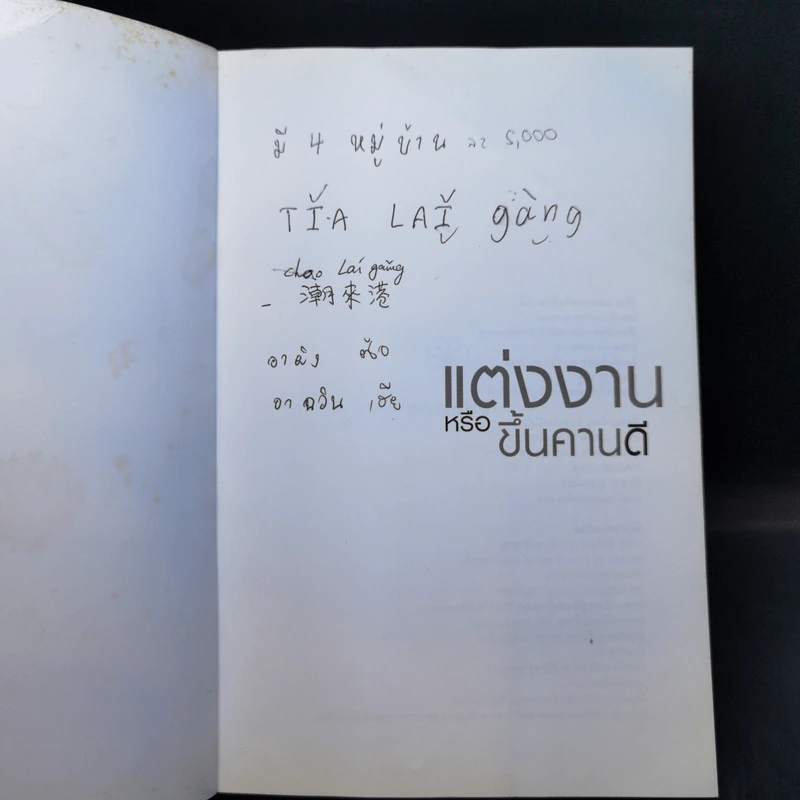 มี 4 หมู่บ้าน ละ 5,000
TǏA LAǏ gàng
chao Lai gǎng
潮來港
อามิง
อา ฉวิน เฮีย
แต่งงาน
หรือ
ขึ้นคานดี